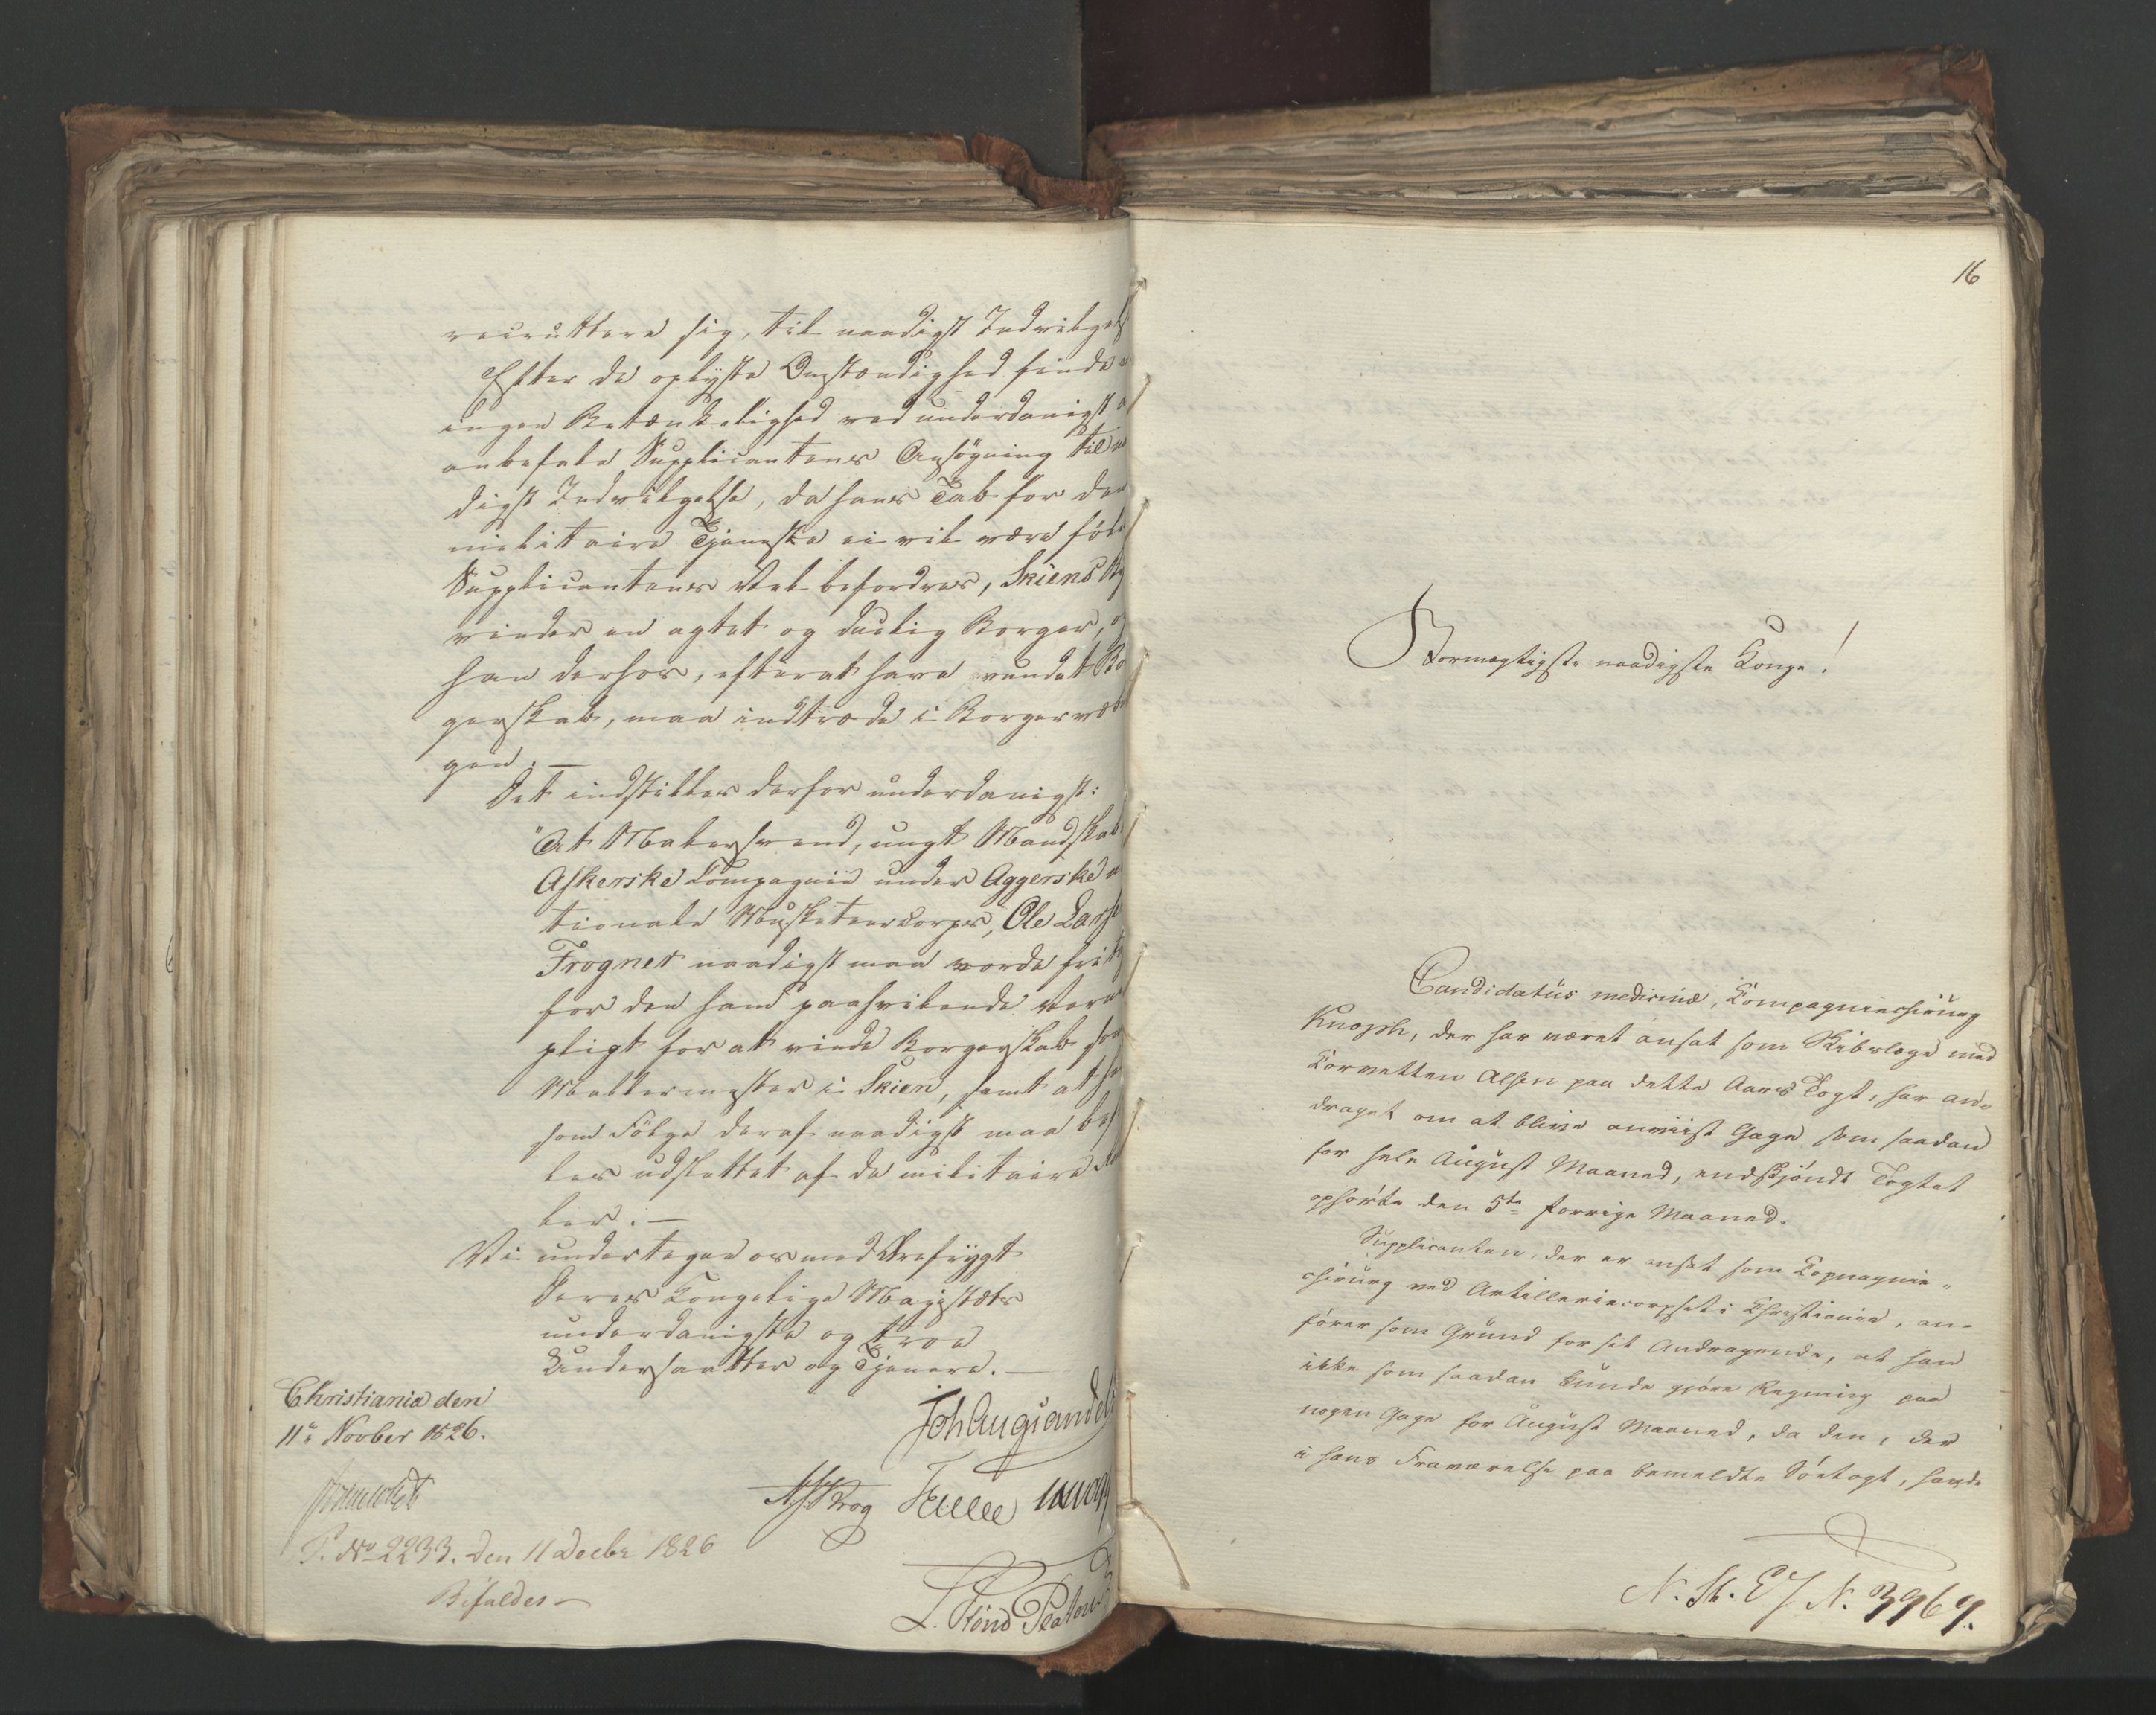 recruttere sig, til naadigst Indvilgels
Efter de oplyste Omstændighed finde
ingen Betænkelighed ved underdanigst
anbefale Supplicantens Ansøgning til
digst Indvilgelse, da hans Tab for den
militaire Tjeneste ei vil være føle
Supplicantens Vel befordres, Skiens By
vinder en agtet og duelig Borger,
han derhos, efterat have vundet Bo
gerskab, maa indtræde i Borgervæb
gen. —
Det indstilles derfor underdanigst:
"At Malersvend, ungt Mandskab
Askerske Compagnie under Aggerske
tionale Musketeercorps, Ole Lars
Frogner naadigst maa vorde frit
for den ham paahvilende Værne
pligt for at vinde Borgerskab som
Mallermester i Skien, samt at
som Følge deraf naadigst maa
les udslettet af de militaire
ler. —
Vi undertegne os med Ærefrygt
Deres Kongelige Majestæts
underdanigste og troe
Undersaatter og Tjenere. —
Christiania den
11te Novber 1826.
Joh Aug Sandels
Krog
P. No 2233. den 11 Decbr 1826
Bifaldes —
16
Stormægtigste naadigste Konge!
Candidatus medicinæ, Compagniechirurg
Knoph, der har været ansat som Skibslæge med
Corvetten Alsen paa dette Aars Togt, har an-
draget om at blive anviist Gage som saadan
for hele August Maaned, endskjøndt Togtet
ophørte den 5te forrige Maaned.
Supplicanten, der er ansat som Copagnie-
chirurg ved Artilleriecorpset i Christiania, an-
fører som Grund for sit Andragende, at han
ikke som saadan kunde gjøre Regning paa
nogen Gage for August Maaned, da den, der
i hans Fraværelse paa bemeldte Søetogt, havde
N. St. Ex. N. 3969.